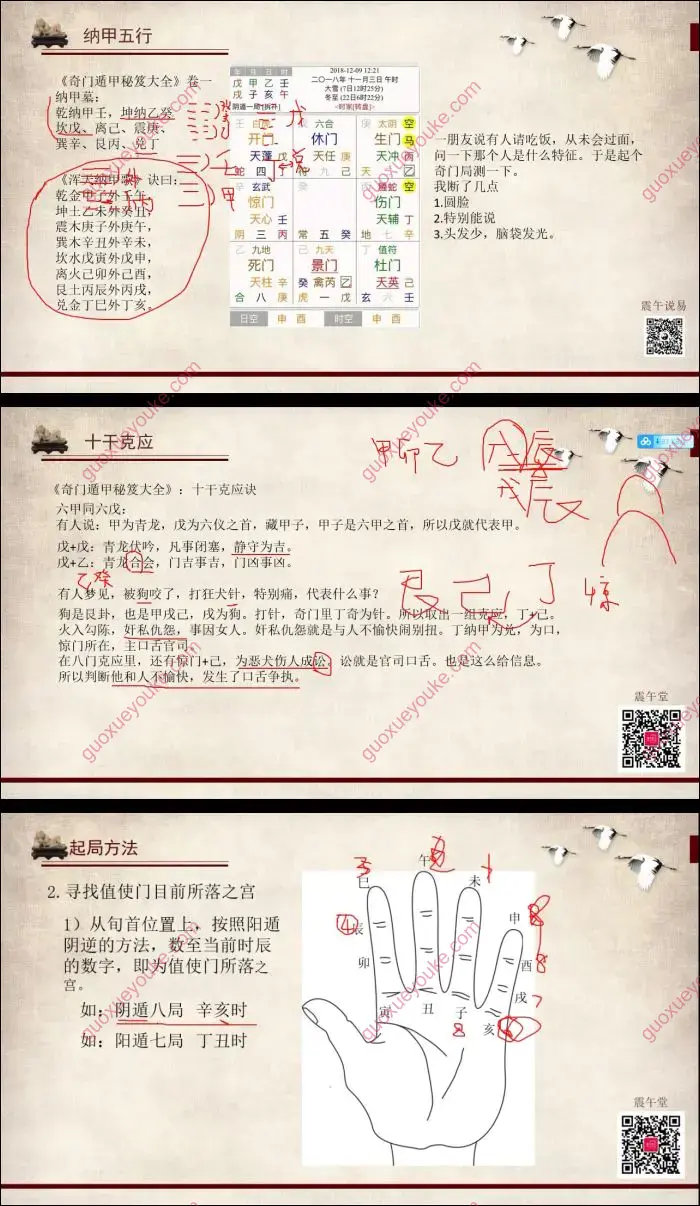 纳甲五行
《奇门遁甲秘笈大全》卷一
纳甲墓:
乾纳甲壬,坤纳乙癸
坎戊、离己、震庚、
巽辛、艮丙、兑丁
《浑天纳甲歌》诀曰:
乾金甲子外壬午,
坤土乙未外癸丑,
震木庚子外庚午,
巽木辛丑外辛未,
坎水戊寅外戊申,
离火己卯外己酉,
艮土丙辰外丙戌,
兑金丁巳外丁亥。
年 月 日 时
戊 甲 乙 壬
戊 子 亥 午
阴遁一局 [拆补]
2018-12-09 12:21
二〇一八年 十一月三日 午时
大雪 (7日12时25分)
冬至 (22日6时22分)
<时家[转盘]>
壬 白虎 六合 太阴 空
开门 休门 生门 马
天蓬 戊 天任 庚 天冲 丙
蛇 四 符 九 己 天 二 乙
辛 玄武 癸 螣蛇 空
惊门 伤门
天心 壬 天辅 丁
阴 三 丙 常 五 癸 地 七 辛
乙 九地 己 九天 丁 值符
死门 景门 杜门
天柱 辛 癸 禽丙 乙 天英 己
合 八 庚 虎 一 戊 玄 六 壬
日空 申 酉 时空 申 酉
一朋友说有人请吃饭,从未会过面,
问一下那个人是什么特征。于是起个
奇门局测一下。
我断了几点
1.圆脸
2.特别能说
3.头发少,脑袋发光。
震午说易
guoxueyouke.com
十干克应
甲卯乙
戊辰
《奇门遁甲秘笈大全》:十干克应诀
六甲同六戊:
有人说:甲为青龙,戊为六仪之首,藏甲子,甲子是六甲之首,所以戊就代表甲。
戊+戊:青龙伏吟,凡事闭塞,静守为吉。
戊+乙:青龙合会,门吉事吉,门凶事凶。
乙癸
有人梦见,被狗咬了,打狂犬针,特别痛,代表什么事?
狗是艮卦,也是甲戌己,戌为狗。打针,奇门里丁奇为针。所以取出一组克应,丁+己。
火入勾陈,奸私仇怨,事因女人。奸私仇怨就是与人不愉快闹别扭。丁纳甲为兑,为口,
惊门所在,主口舌官司。
在八门克应里,还有惊门+己,为恶犬伤人成讼。讼就是官司口舌。也是这么给信息。
所以判断他和人不愉快,发生了口舌争执。
震午堂
guoxueyouke.com
起局方法
2.寻找值使门目前所落之宫
1)从旬首位置上,按照阳遁
阴逆的方法,数至当前时辰
的数字,即为值使门所落之
宫。
如:阴遁八局 辛亥时
如:阳遁七局 丁丑时
巳 午 未 申
辰 酉
卯 戌
寅 丑 子 亥
震午堂
guoxueyouke.com